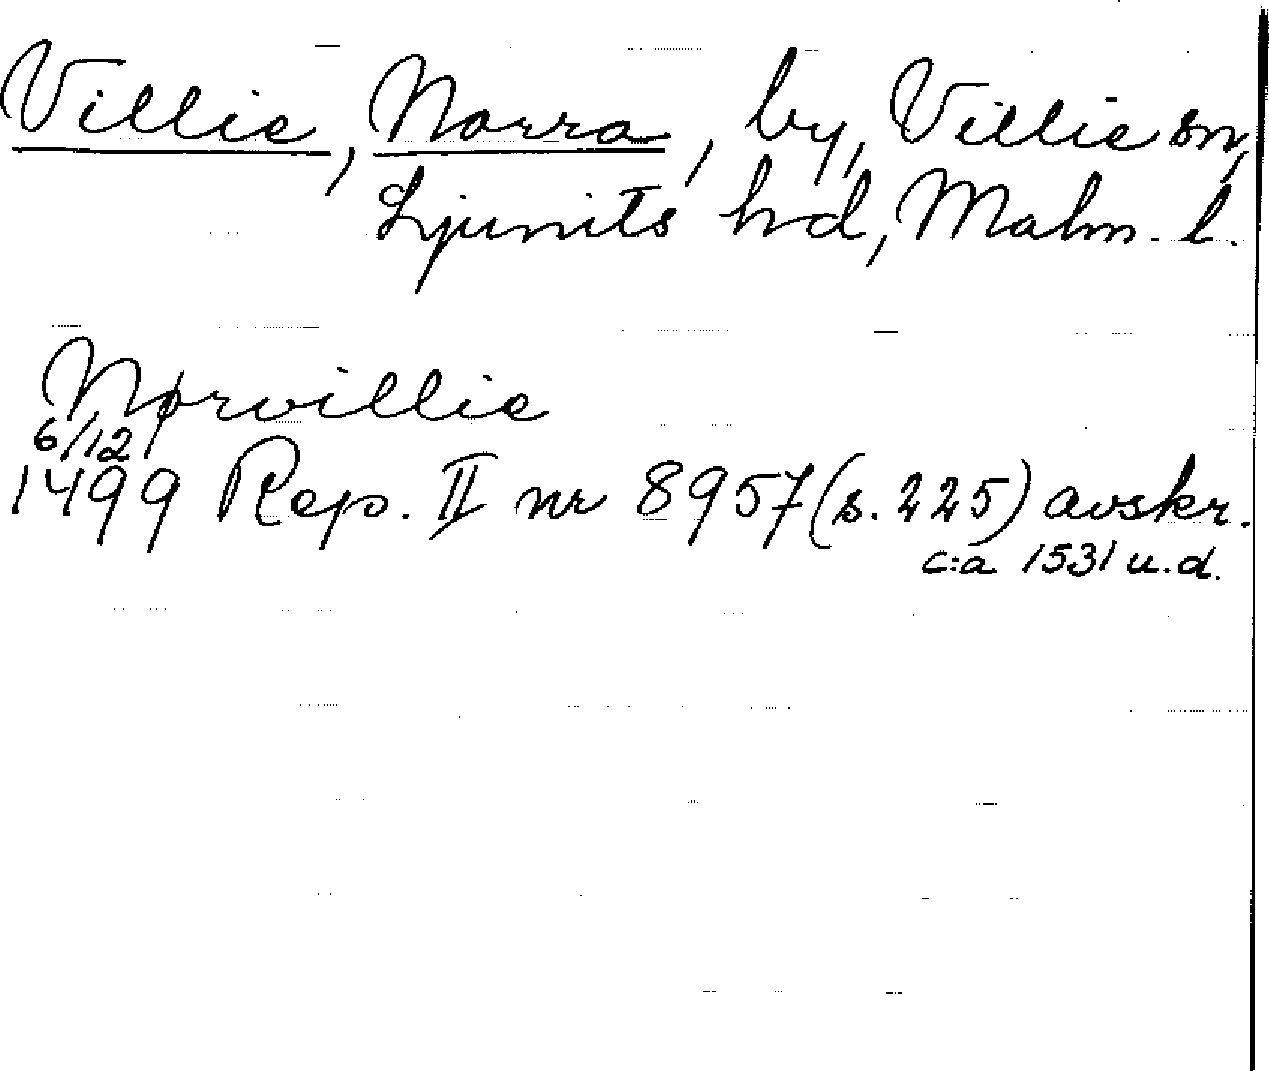 Villie, Norra, by, Villie sn,
Ljunits hd, Malm. l.
Nørvillie
6/12
1499 Rep. II nr 8957 (s. 225) avskr.
c:a 1531 u.d.